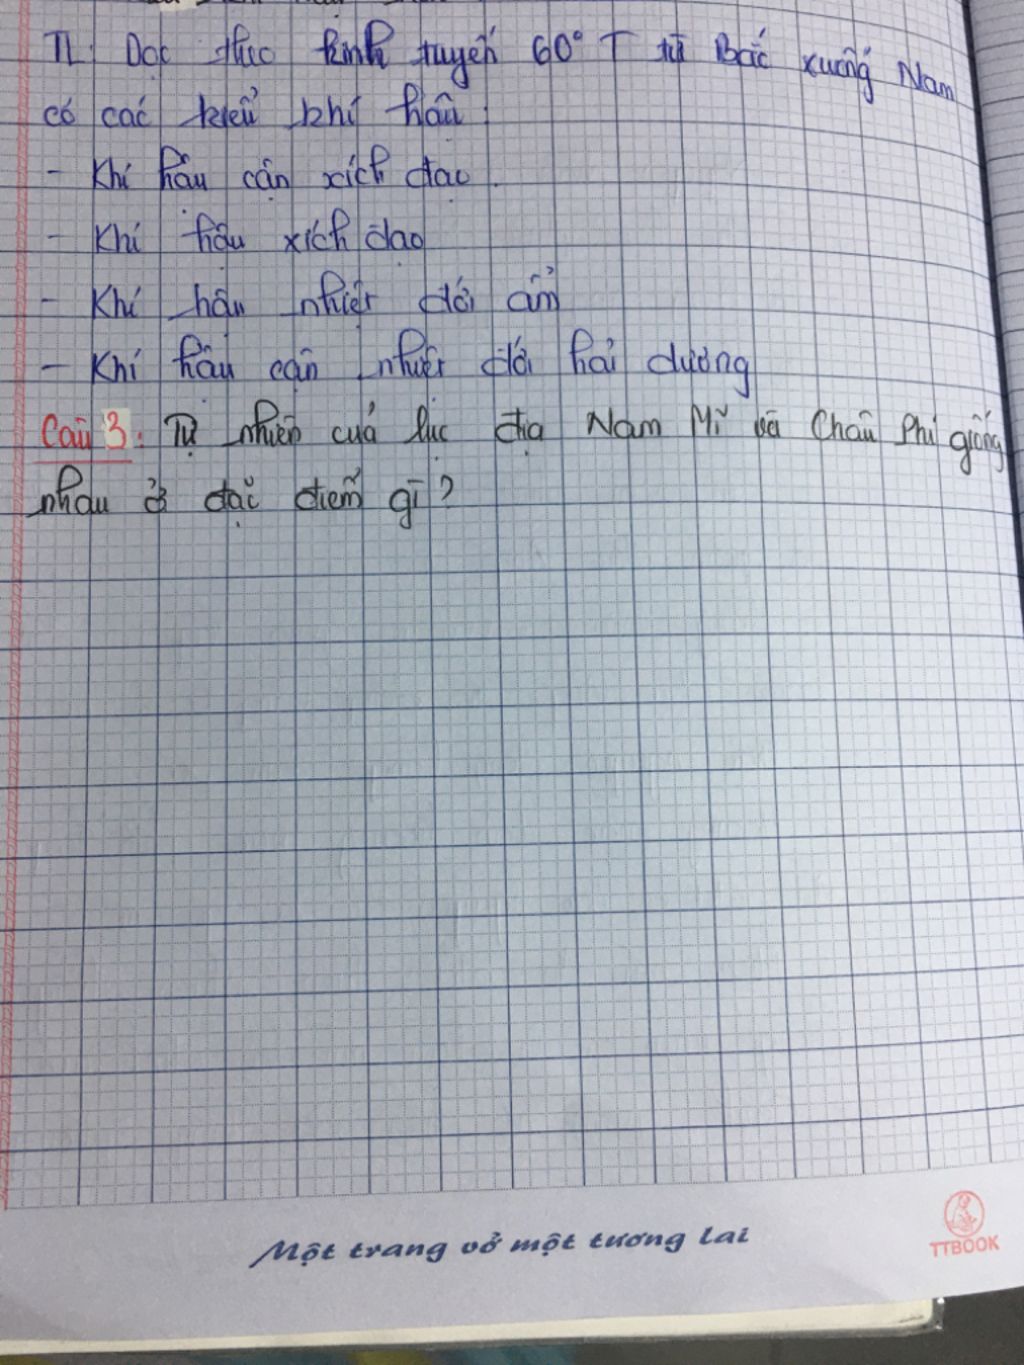 TL: Dọc theo kinh tuyến 60° T từ Bắc xuống Nam
có các kiểu khí hậu:
- Khí hậu cận xích đạo.
- Khí hậu xích đạo
- Khí hậu nhiệt đới ẩm
- Khí hậu cận nhiệt đới hải dương
Câu 3: Tự nhiên của lục địa Nam Mĩ và Châu Phi giống
nhau ở đặc điểm gì?
Một trang vở một tương lai
TTBOOK